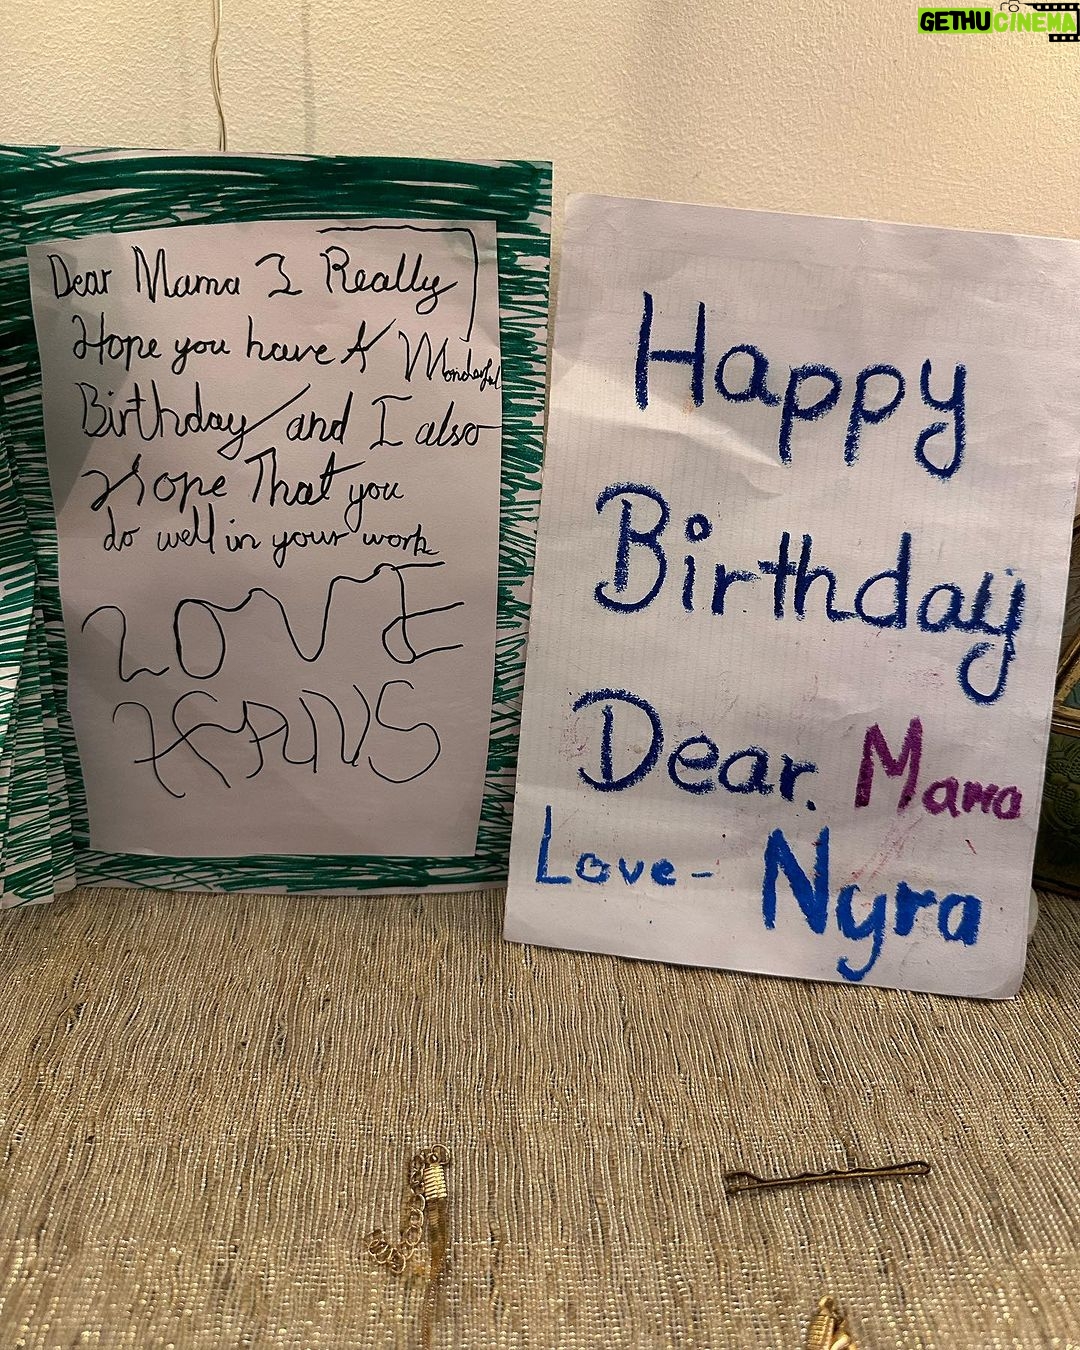 GETHUCINEMA
Dear Mama I Really
Hope you have A Wonderful
Birthday and I also
Hope That you
do well in your work
LOVE
Happy
Birthday
Dear. Mama
Love- Nyra